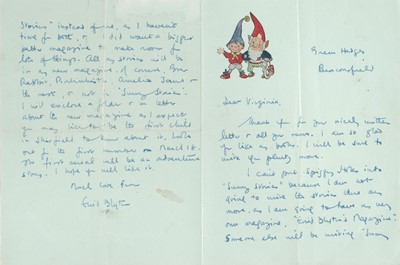 Green Hedges
Beaconsfield
Dear Virginia,
Thank you for your nicely written
letter & all your news. I am so glad
you like my books. I will be sure to
write you plenty more.
I can't put Spiffy stories into
"Sunny Stories" because I am not
going to write the stories there any
more, as I am going to have my very
own magazine, "Enid Blyton's Magazine".
Someone else will be writing "Sunny
Stories" instead of me, as I haven't
time for both, & I did want a bigger
better magazine to make room for
lots of things. All my stories will be
in my new magazine, of course,
Rabbit, Amelia Jane &
the rest, & not "Sunny Stories".
I will enclose a folder & a letter
about the new magazine as I expect
you may like to be the first child
in to know about it. Look
out for the first number on March 18.
The first serial will be an adventure
story. I hope you will like it.
Much love from
Enid Blyton